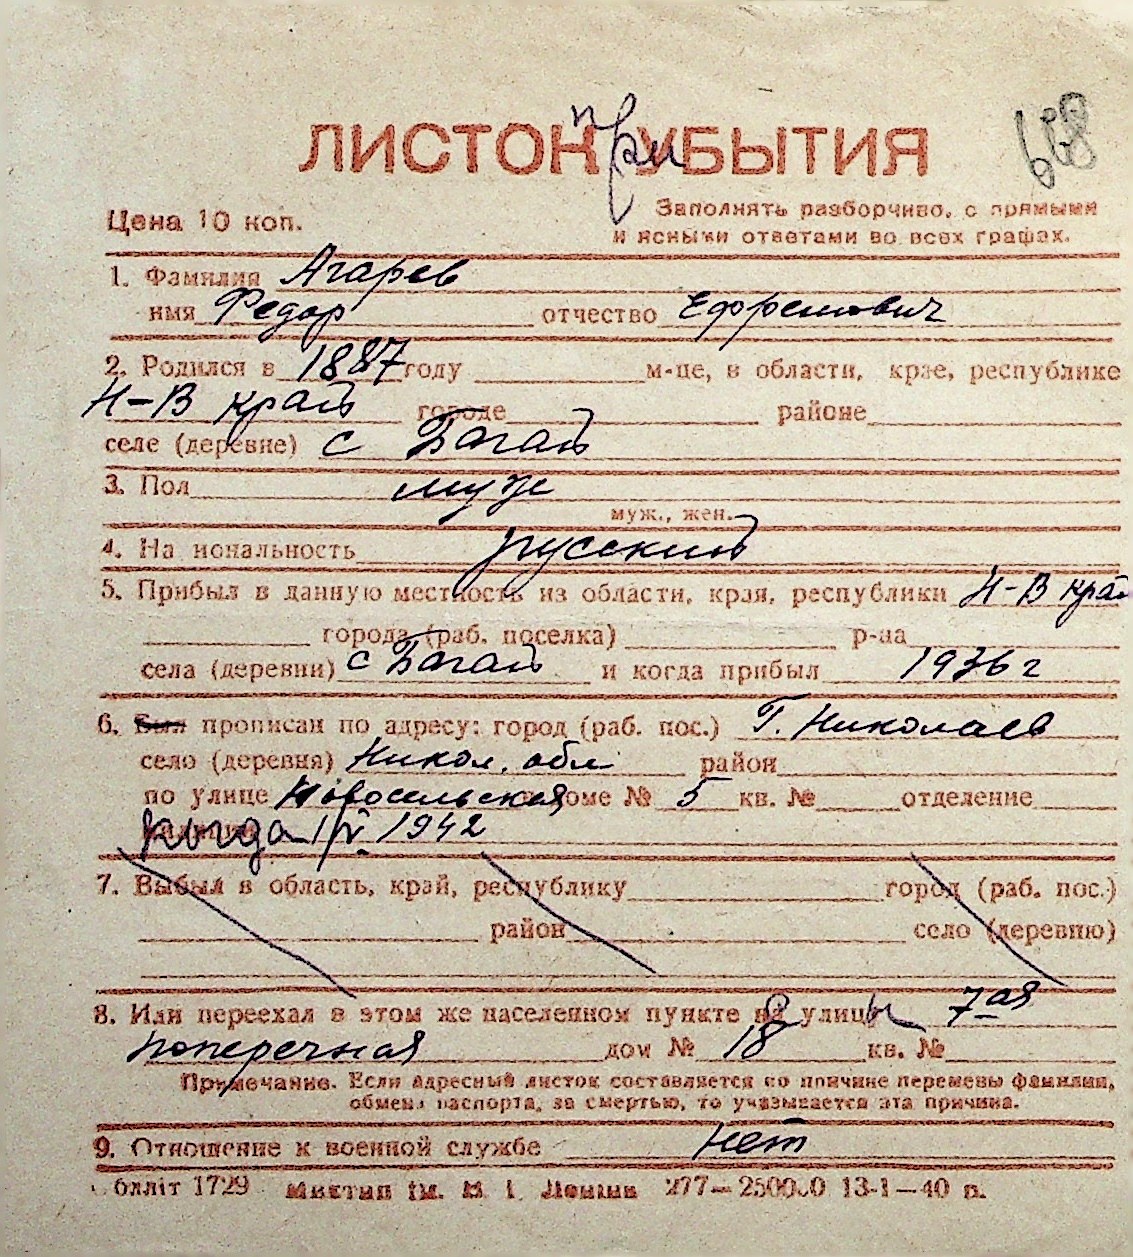 668
ЛИСТОК прибытия
Цена 10 коп.
Заполнять разборчиво, с прямыми
и ясными ответами во всех графах.
1. Фамилия Агарев
имя Федор отчество Ефремович
2. Родился в 1887 году м-це, в области, крае, республике
Н-В край городе районе
селе (деревне) с Багай
3. Пол муж
муж., жен.
4. Национальность русский
5. Прибыл в данную местность из области, края, республики Н-В край
города (раб. поселка) р-на
села (деревни) с Багай и когда прибыл 1936 г
6. Был прописан по адресу: город (раб. пос.) Г. Николаев
село (деревня) Никол. обл район
по улице Новосельская доме № 5 кв. № отделение
когда 1/V 1942
7. Выбыл в область, край, республику город (раб. пос.)
район село (деревню)
8. Или переехал в этом же населенном пункте улицы 7-ая
поперечная дом № 18 кв. №
Примечание. Если адресный листок составляется по причине перемены фамилии,
обмена паспорта, за смертью, то указывается эта причина.
9. Отношение к военной службе нет
Обліт 1729 Миктип ім. В. І. Леніна 277—250000 13-1—40 р.